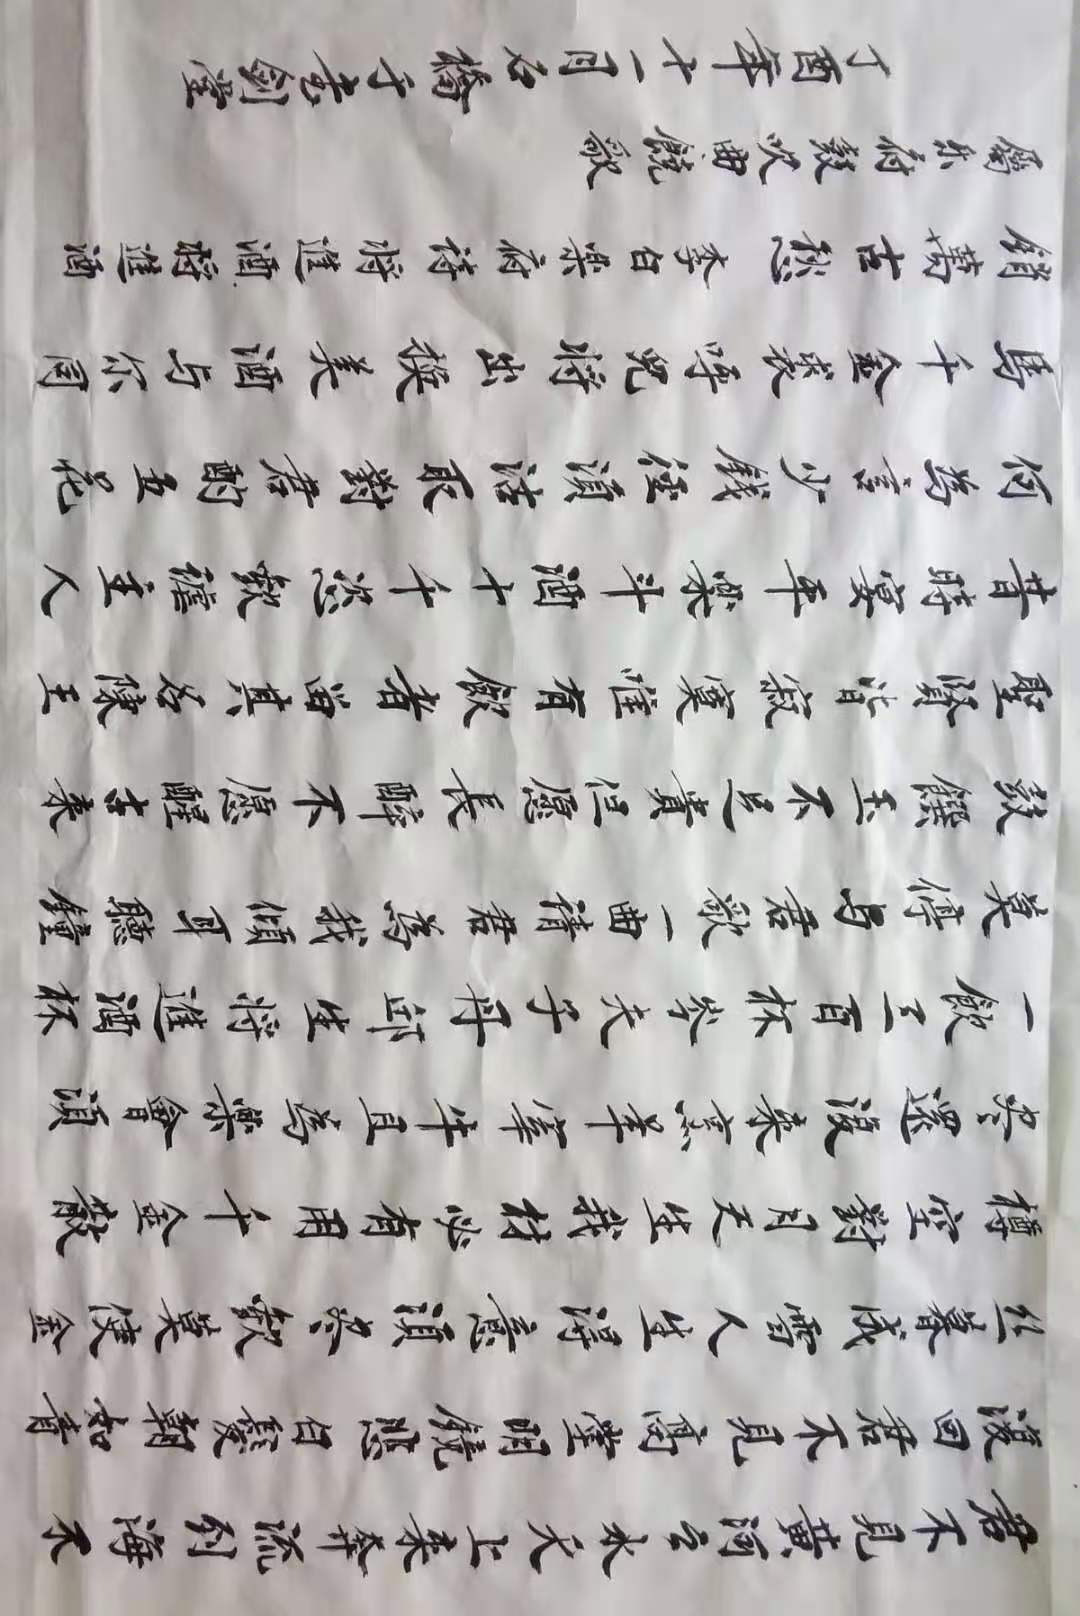 君不見黄河之水天上来奔流到海不
復回君不見高堂明鏡悲白髮朝如青
丝暮成雪人生得意須尽歡莫使金
樽空對月天生我材必有用千金散
尽還復来烹羊宰牛且為樂會須
一飲三百杯岑夫子丹邱生将進酒杯
莫停与君歌一曲請君為我傾耳聽鐘
鼓饌玉不足貴但愿長醉不愿醒古来
聖賢皆寂寞惟有飲者留其名陳王
昔時宴平樂斗酒十千恣歡謔主人
何為言少錢徑須沽取對君酌五花
馬千金裘呼兒将出换美酒与尔同
銷萬古愁 李白樂府詩将進酒将進酒
屬乐府鼓吹曲饒歌
丁酉年十一月石橋于書劍堂